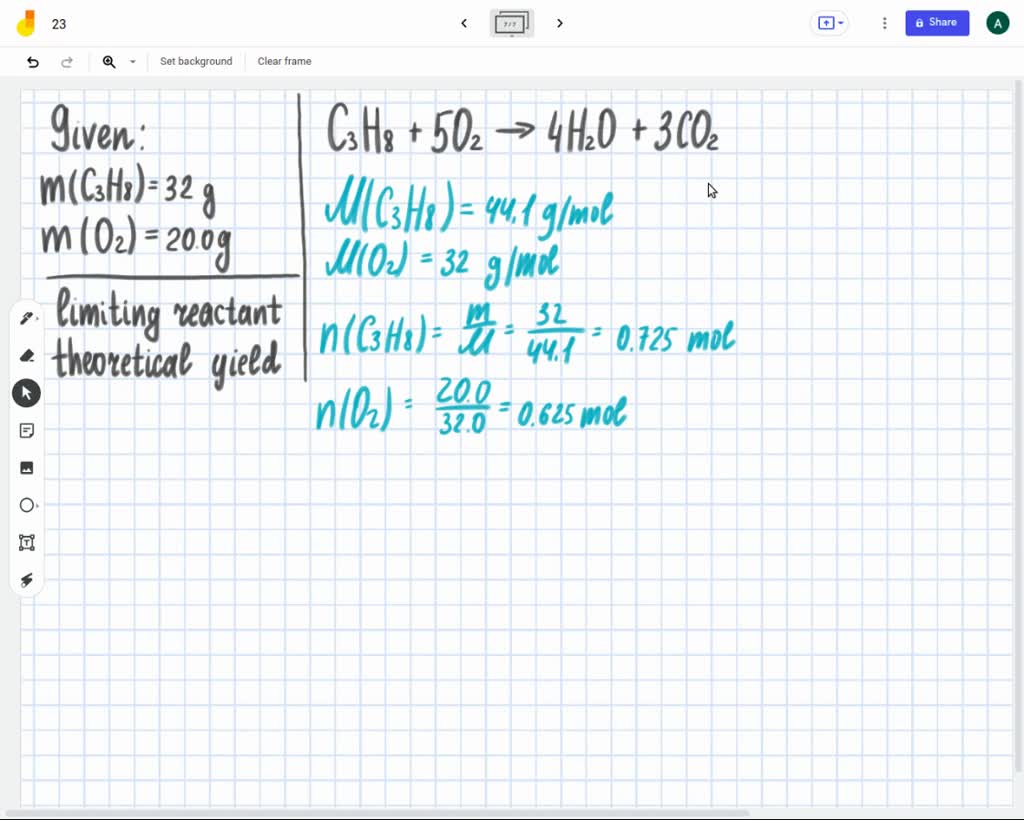 23
7 / 7
Share
A
Set background
Clear frame
Given:
m(C₃H₈) = 32 g
m(O₂) = 20.0g
limiting reactant
theoretical yield
C₃H₈ + 5O₂ → 4H₂O + 3CO₂
M(C₃H₈) = 44.1 g/mol
M(O₂) = 32 g/mol
n(C₃H₈) = m/M = 32/44.1 = 0.725 mol
n(O₂) = 20.0/32.0 = 0.625 mol